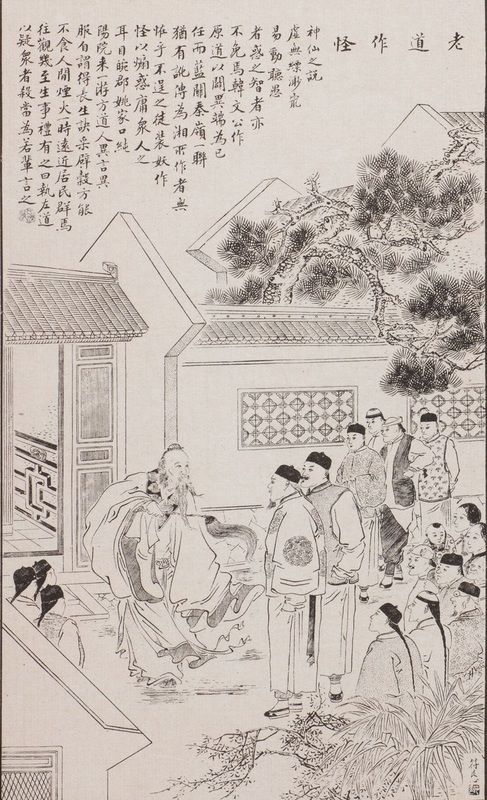 老道作怪
神仙之說
虛無縹渺最
易動聽愚
者惑之智者亦
不免焉韓文公作
原道以闢異端為己
任而藍關秦嶺一聯
猶有訛傳為湘所作者無
恠乎不逞之徒裝妖作
怪以煽惑庸衆人之
耳目郡姚家口純
陽院來一游方道人異言異
服自謂得長生訣采辟穀方能
不食人間煙火一時遠近居民群焉
往觀幾至生事禮有之曰執左道
以疑衆者殺當為若輩言之
符艮心